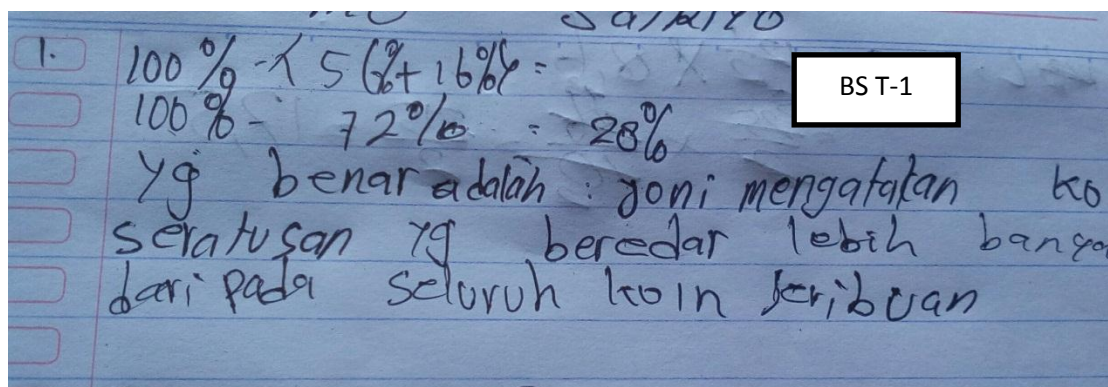 1. 100% - (56% + 16%) =
100% - 72% = 28%
BS T-1
yg benar adalah : joni mengatakan ko
seratusan yg beredar lebih banya
dari pada seluruh koin seribuan